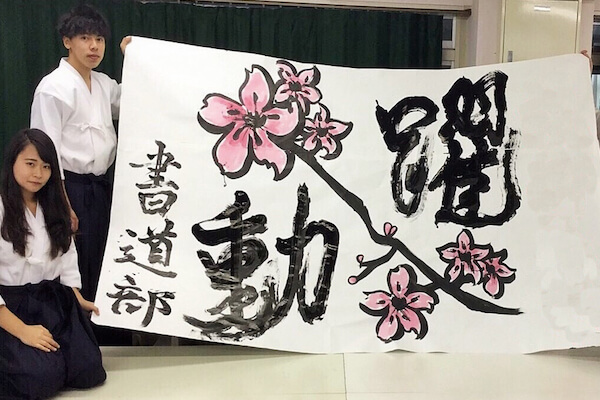 躍動
書道部